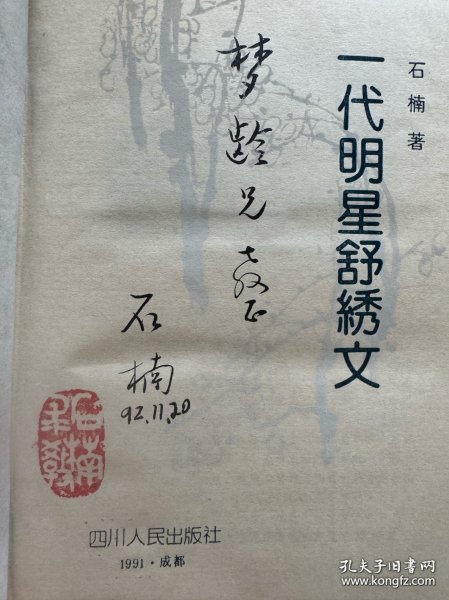 石楠著
一代明星舒綉文
梦龄兄教正
石楠
92.11.20
四川人民出版社
1991·成都
孔夫子旧书网
www.kongfz.com